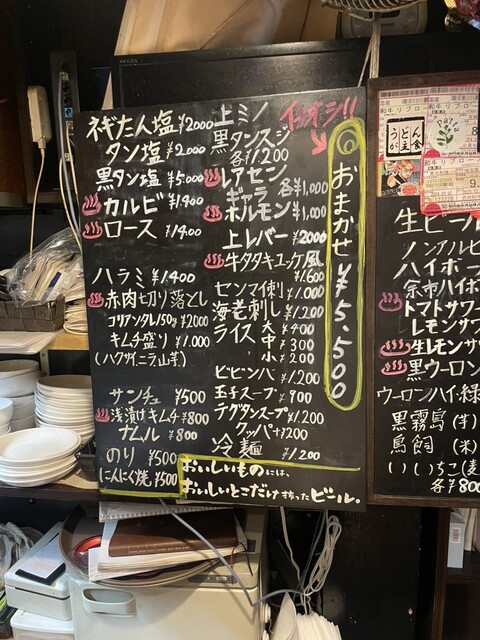 ネギたん塩 ¥2000
タン塩 ¥2,000
黒タン塩 ¥5,000
カルビ ¥1,900
ロース 1,900
ハラミ ¥1,400
赤肉切り落とし
コリアンタレ150g ¥2000
キムチ盛り ¥1,000
(ハクサイ,ニラ,山芋)
サンチュ ¥500
浅漬けキムチ ¥800
ナムル ¥800
のり ¥500
にんにく焼 ¥500
上ミノ
黒タンスジ
各¥1,200
レアセン
ギャラ 各¥1,000
ホルモン ¥1,000
上レバー ¥2000
牛タタキユッケ風
¥1,600
センマイ刺 ¥1,000
海老刺し ¥1,200
ライス 大 ¥400
中 ¥300
小 ¥200
ビビンバ ¥1,200
玉子スープ ¥700
テグタンスープ ¥1,200
クッパ+¥200
冷麺 ¥1,200
イチオシ!!
◎おまかせ ¥5,500
おいしいものには、
おいしいとこだけ搾ったビール。
うどん
が主食
生ビール
ノンアルビ
ハイボー
余市ハイボ
トマトサワ
レモンサワ
生レモンサ
黒ウーロン
ウーロンハイ・緑
黒霧島 (牛)
鳥飼 (米)
いいちこ (麦
各¥800